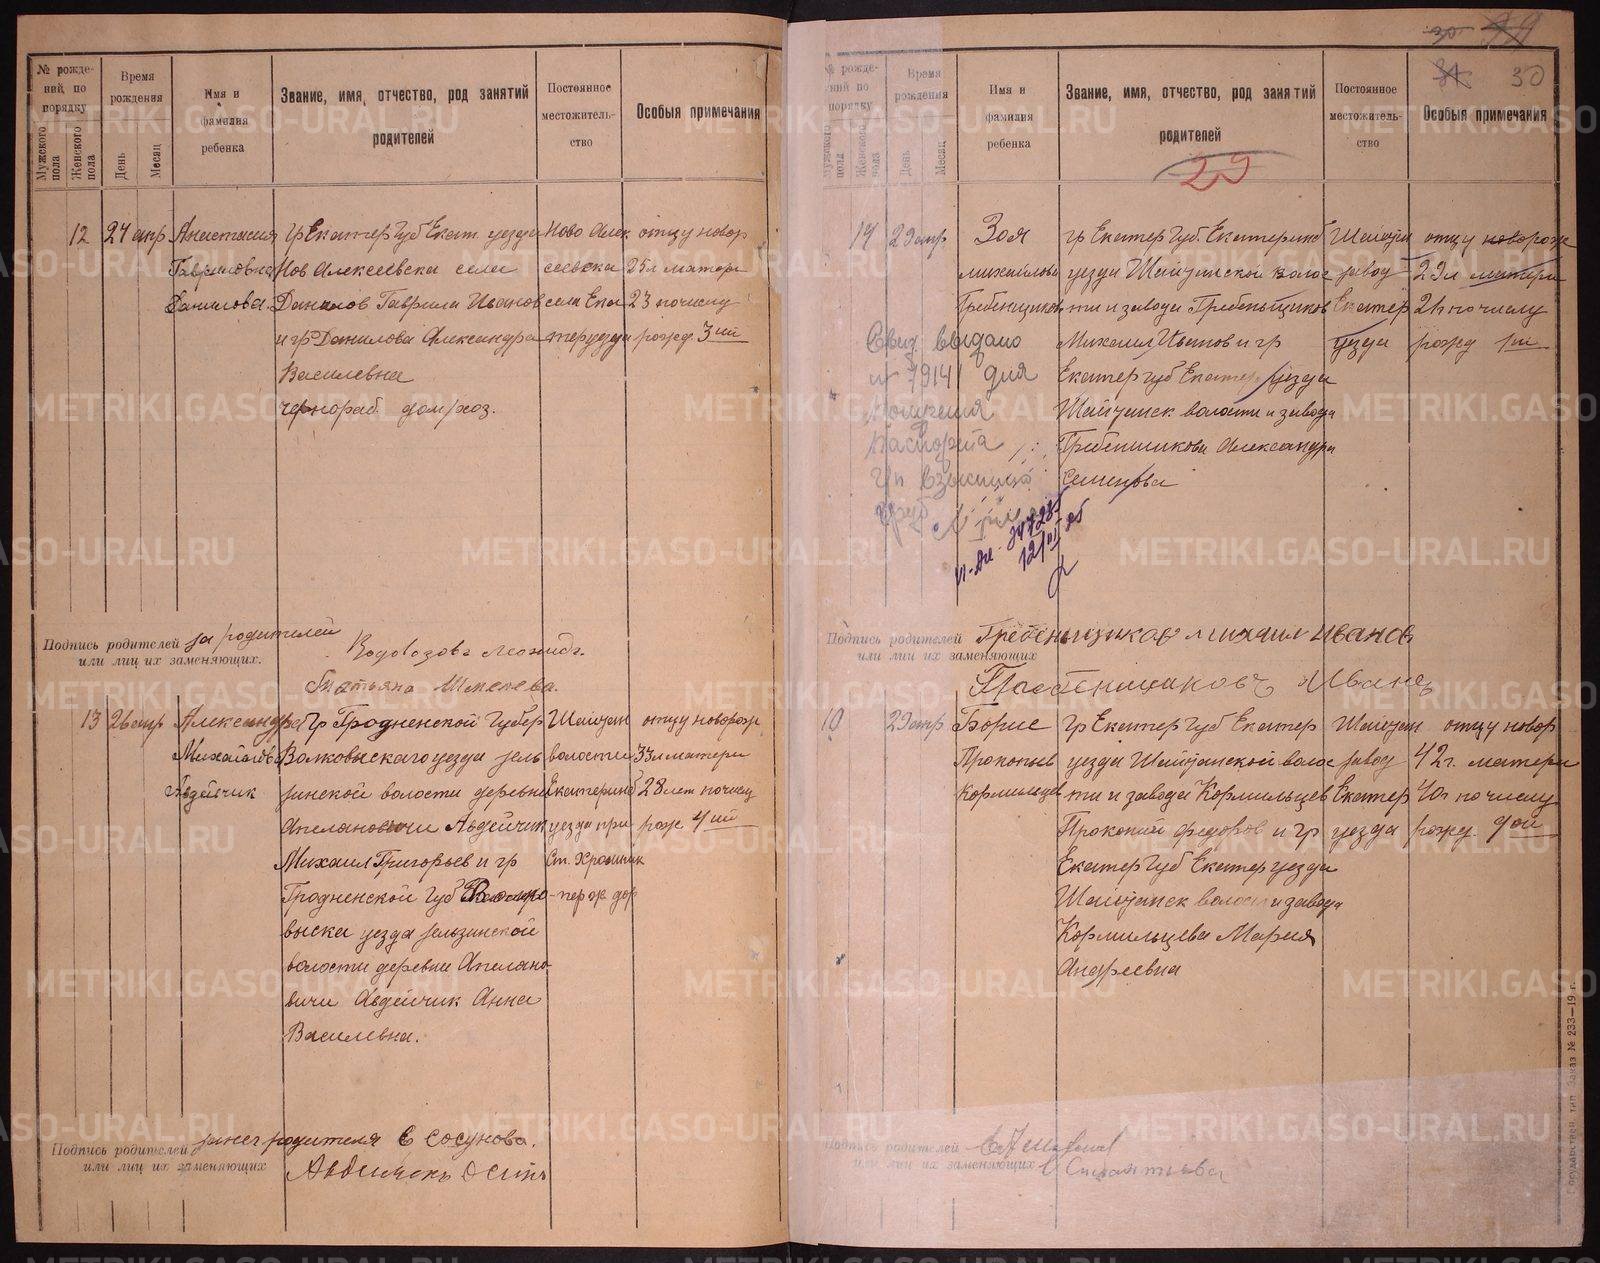 № рожде-
ний по
порядку
Мужского
пола
Женского
пола
Время
рождения
День
Месяц
Имя и
фамилия
ребенка
Звание, имя, отчество, род занятий
родителей
Постоянное
местожитель-
ство
Особыя примечания
12
24 апр
Анастасия
Гавриловна
Данилова
гр Екатер Губ Екат. уезда
Нов Алексеевска села
Данилов Гаврила Иванов
и гр Данилова Александра
Васильевна
чернораб. дом/хоз.
Ново Алек
сеевска
села Ека
тер уезда
отцу новор
25 л матери
23 по числу
рожд. 3ий
Подпись родителей за родителей
или лиц их заменяющих.
Водовозовъ Леонидъ.
Татьяна
13
26 апр
Александра
Михайловна
Авдейчик
гр Гродненской Губер
Волковыскаго уезда зель
зинской волости деревни
Авдейчик
Михаил Григорьев и гр
Гродненской Губ
выска уезда зельзинской
волости деревни Апелано-
вичи Авдейчик Анна
Василевна.
Шайтан
волости
Екатеринб
уезда при
ст. Хромпик
пер ж дор
отцу новорож
33 л матери
28 лет по числу
рож 4ий
Подпись родителей
или лиц их заменяющих
родителя Е Сосунова.
30
29
31
30
№ рожде-
ний по
порядку
Мужского
пола
Женского
пола
Время
рождения
День
Месяц
Имя и
фамилия
ребенка
Звание, имя, отчество, род занятий
родителей
29
Постоянное
местожитель-
ство
Особыя примечания
14
29 апр
Зоя
Михайлова
Гребенщиков
гр Екатер Губ. Екатеринб
уезда Шайтанской волос
ти и завода Гребеньщиков
Михаил Иванов и гр
Екатер губ Екатер уезда
Шайтанск волости и завода
Гребеншикова Александра
Семенова
Шайтан
завод
Екатер
уезда
отцу новорож
29 л матери
21 по числу
рожд 1ий
Свид выдано
для
получения
паспорта
Подпись родителей Гребеньщиков Михаил Иванов
или лиц их заменяющих
Гребенщиковъ Иванъ
10
29 апр
Борис
Прокопьев
Кормильцев
гр Екатер Губ Екатер
уезда Шайтанской волос
ти и завода Кормильцев
Прокопий Федоров и гр
Екатер Губ Екатер уезда
Шайтанск волости и завода
Кормильцева Мария
Андреевна
Шайтан
завод
Екатер
уезда
отцу новор
42 г. матери
40 л по числу
рожд. 9ой
Подпись родителей
или лиц их заменяющих
Государствен. тип. Заказ № 233—19 г.
METRIKI.GASO-URAL.RU